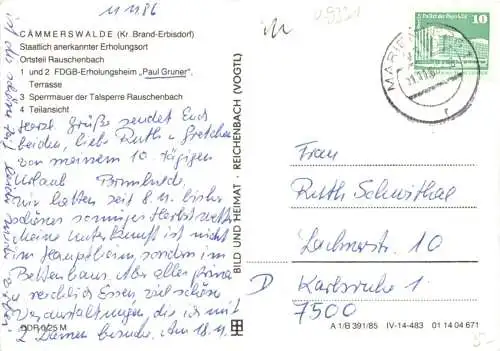 11.11.86
CÄMMERSWALDE (Kr. Brand-Erbisdorf)
Staatlich anerkannter Erholungsort
Ortsteil Rauschenbach
1 und 2 FDGB-Erholungsheim „Paul Gruner",
Terrasse
3 Sperrmauer der Talsperre Rauschenbach
4 Teilansicht
Herzl. Grüße sendet Euch
beiden, liebe Ruth u. Gretchen
von meinem 10-tägigen
Urlaub
Wir hatten seit 8.11. bisher
schönes sonniges Herbstwetter
Meine Unterkunft ist nicht
im Haupthaus, sondern im
Bettenhaus. Aber alles prima
u. reichlich Essen, viel schöne
Veranstaltungen, die ich mit
2 Damen besuche. Am 18.11.
DDR 0,25 M
BILD UND HEIMAT · REICHENBACH (VOGTL)
10
MARIEN
11.11.86
Frau
Ruth Schwithal
Lachnerstr. 10
D Karlsruhe 1
7500
A 1/B 391/85 IV-14-483 01 14 04 671